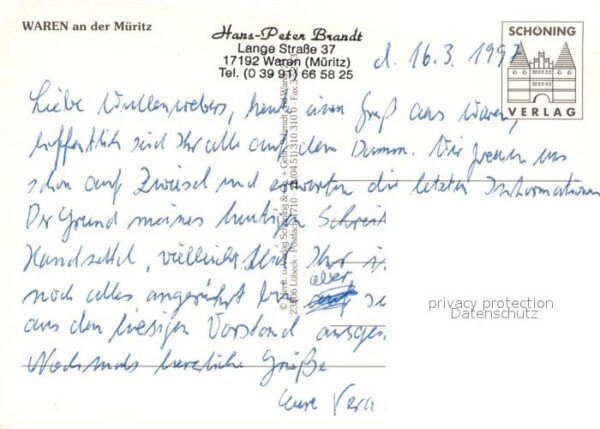 WAREN an der Müritz
Hans-Peter Brandt
Lange Straße 37
17192 Waren (Müritz)
Tel. (0 39 91) 66 58 25
SCHÖNING
VERLAG
d. 16.3. 1997
Liebe Wullenwebers, heute einen Gruß aus Waren,
hoffentlich seid Ihr alle auf dem Damm. Wir freuen uns
schon auf Zwiesel und erwarten die letzten Informationen
Der Grund meines heutigen Schreib
Handzettel, vielleicht Ihr
noch alles angerührt aber
aus dem hiesigen Vorstand ausges
Nochmals herzliche Grüße
Eure Vera
privacy protection
Datenschutz